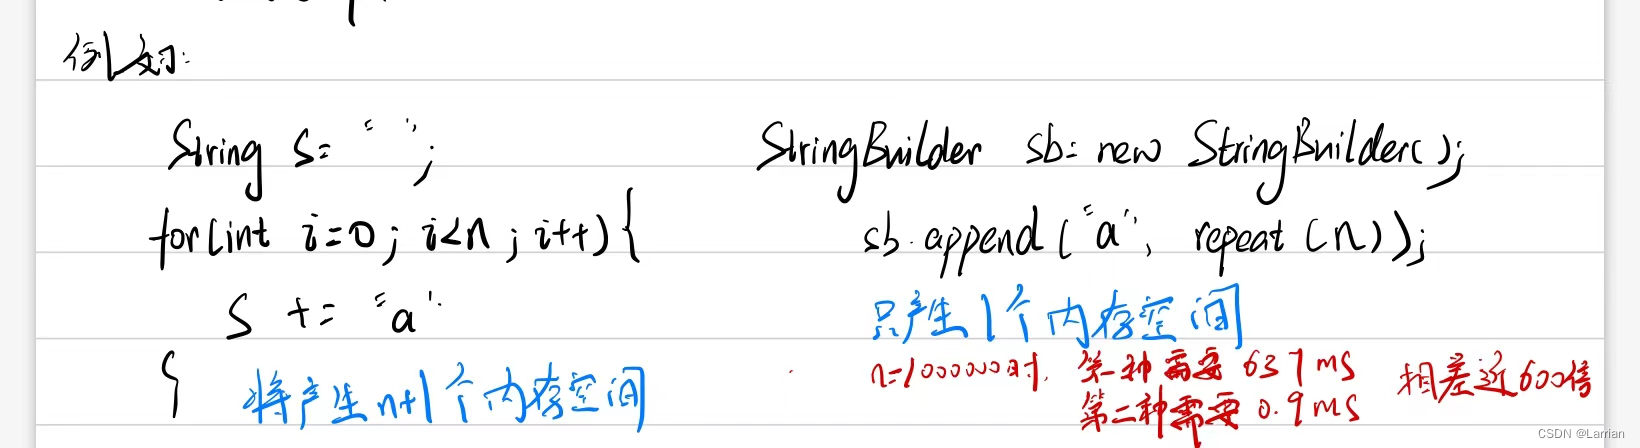 例如:
String s= " ";
for(int i=0; i<n; i++){
s += "a"
}
将产生n+1个内存空间
StringBuilder sb= new StringBuilder();
sb.append("a", repeat(n));
只产生1个内存空间
n=1000000时. 第一种需要 637 ms
第二种需要 0.9 ms
相差近600倍
CSDN @Larrian